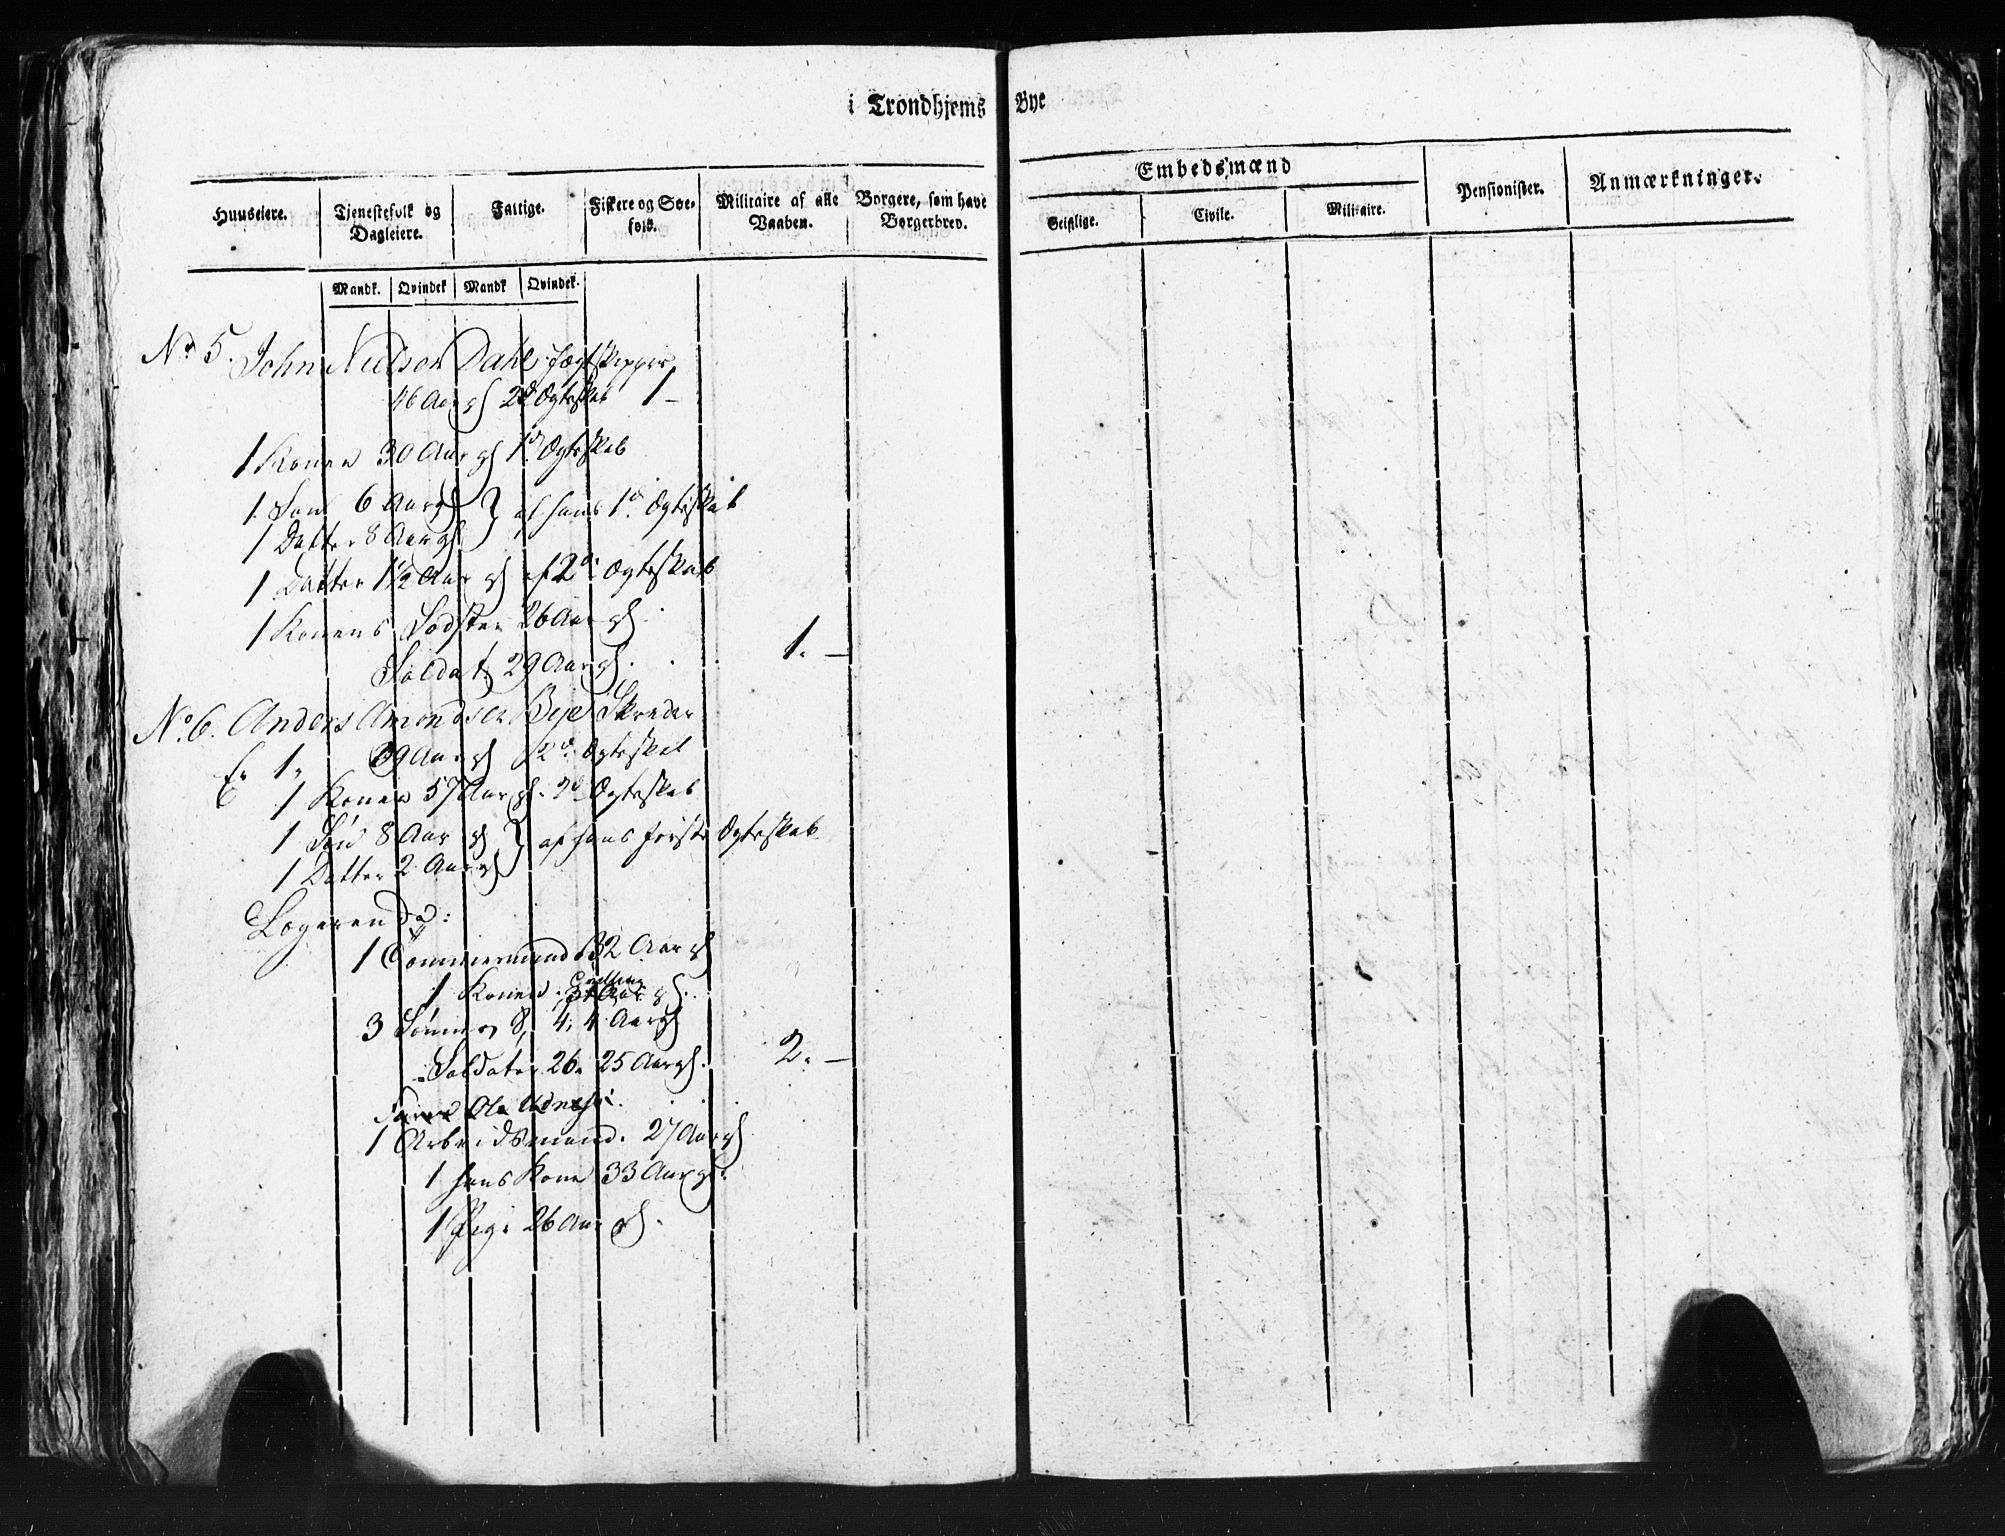 i Trondhjems Bye
Huuseiere. Tjenestefolk og Dagleiere. Fattige. Fiskere og Søefolk. Militaire af alle Vaaben. Borgere, som have Borgerbrev. Embedsmænd Pensionister. Anmærkninger.
Geistlige. Civile. Militaire.
Mandk. Qvindek Mandk Qvindek.
No 5. John Nielsen Dahl Jægtskipper
46 Aar gl 2d Ægteskab 1 –
1 Konen 30 Aar gl 1d Ægteskab
1. Søn 6 Aar gl } af hans 1d Ægteskab
1 Datter 8 Aar gl
1 Datter 1½ Aar gl af 2d Ægteskab
1 Konens Sødster 26 Aar gl.
Soldat 29 Aar gl. 1. –
No. 6. Anders Amondsen Beje Skreder
1. 69 Aar gl 2d. Ægteskab
1 Konen 57 Aar gl. 2d Ægteskab
1 Søn 8 Aar gl } af hans første Ægteskab
1 Datter 2 Aar gl
Logerende:
1 Tømmermand 32 Aar gl
1 Konen 34 Aar gl.
3 Sønner 8, 4, 4 Aar gl
Soldater 26. 25 Aar gl. 2. –
Ole
1 Arbeidsmand. 27 Aar gl
1 hans Kone 33 Aar gl.
1 Pige 26 Aar gl.